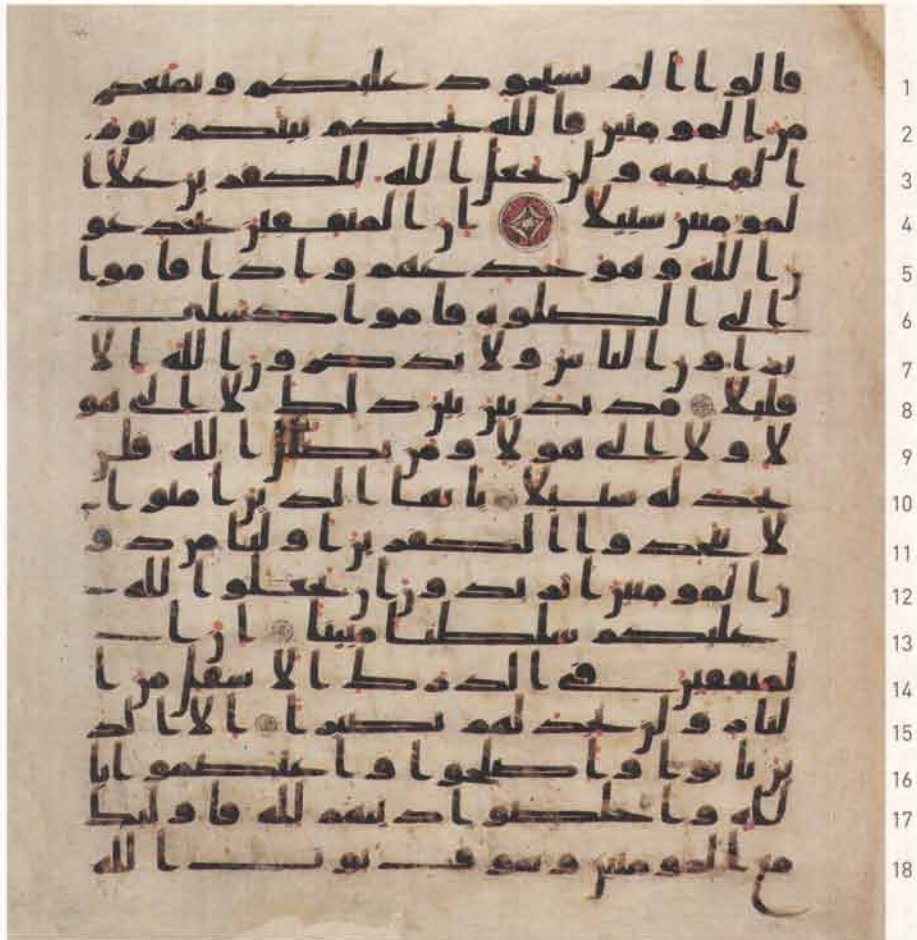 1 قالوا الم نستحوذ عليكم ونمنعكم
2 من المومنين فالله يحكم بينكم يوم
3 القيمه ولن يجعل الله للكفرين على ا
4 لمومنين سبيلا ان المنفقين يخدعو
5 ن الله وهو خدعهم واذا قاموا
6 الى الصلوه قاموا كسلى
7 يراون الناس ولا يذكرون الله الا
8 قليلا مذبذبين بين ذلك لا الى هو
9 لا ولا الى هولا ومن يضلل الله فلن
10 تجد له سبيلا يايها الذين امنوا
11 لا تتخذوا الكفرين اوليا من دو
12 ن المومنين اتريدون ان تجعلوا لله
13 عليكم سلطنا مبينا ان ا
14 لمنفقين في الدرك الاسفل من ا
15 لنار ولن تجد لهم نصيرا الا الذ
16 ين تابوا واصلحوا واعتصموا با
17 لله واخلصوا دينهم لله فاوليك
18 مع المومنين وسوف يوت الله